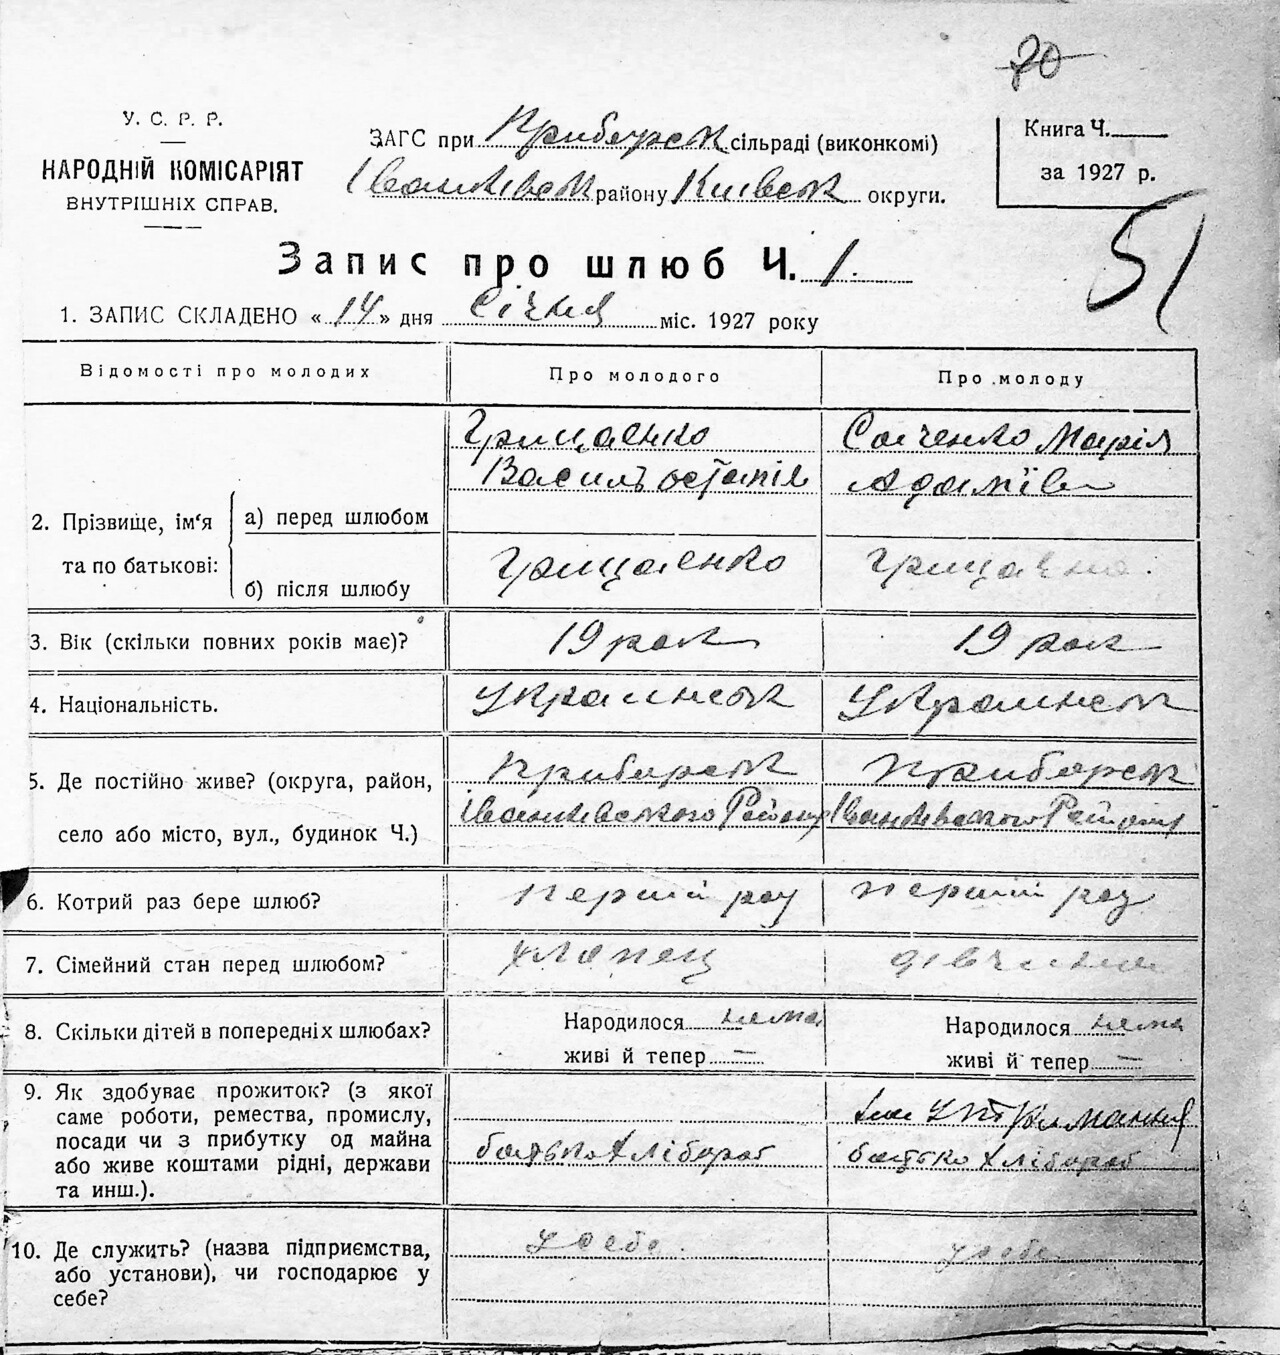 70
У. С. Р. Р.
НАРОДНІЙ КОМІСАРІЯТ
ВНУТРІШНІХ СПРАВ.
ЗАГС при Приборськ сільраді (виконкомі)
Іванківськ району Київськ округи.
Книга Ч.
за 1927 р.
51
Запис про шлюб Ч. 1.
1. ЗАПИС СКЛАДЕНО « 14 » дня Січня міс. 1927 року
Відомості про молодих Про молодого Про молоду
2. Прізвище, ім'я та по батькові:
а) перед шлюбом
Грищенко
Василь Остапів
Саченко Марія
Адамївн
б) після шлюбу Грищенко
3. Вік (скільки повних років має)? 19 рок 19 рок
4. Національність. Украинськ Украинськ
5. Де постійно живе? (округа, район, Приборськ Приборськ
село або місто, вул., будинок Ч.) Іванківського Району Іванківського Району
6. Котрий раз бере шлюб? перший раз перший раз
7. Сімейний стан перед шлюбом? хлопец дівчина
8. Скільки дітей в попередніх шлюбах? Народилося нема Народилося нема
живі й тепер — живі й тепер —
9. Як здобуває прожиток? (з якої
саме роботи, ремества, промислу, утримання
посади чи з прибутку од майна батько хлібороб батько хлібороб
або живе коштами рідні, держави
та инш.).
10. Де служить? (назва підприємства, у себе у себе
або установи), чи господарює у
себе?